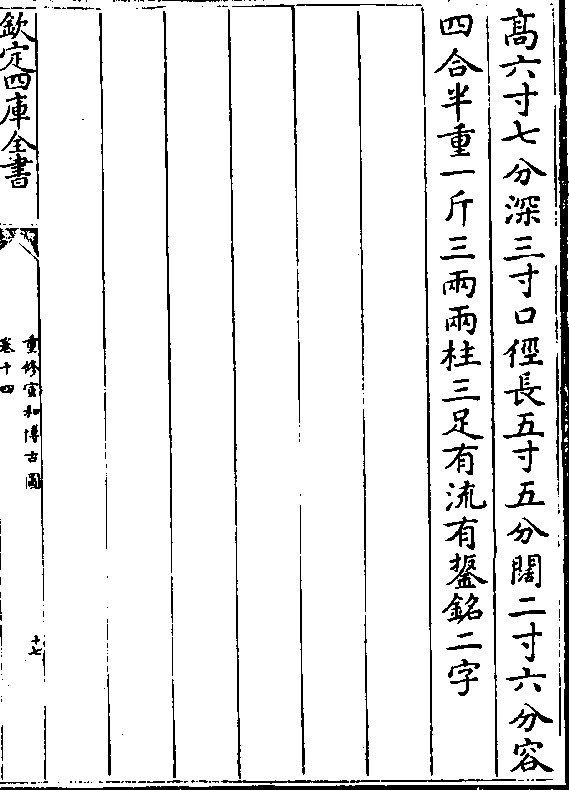 髙六寸七分深三寸口徑長五寸五分闊二寸六分容
四合半重一斤三兩兩柱三足有流有鋬銘二字
欽定四庫全書
重修宣和博古圖
卷十四
十七